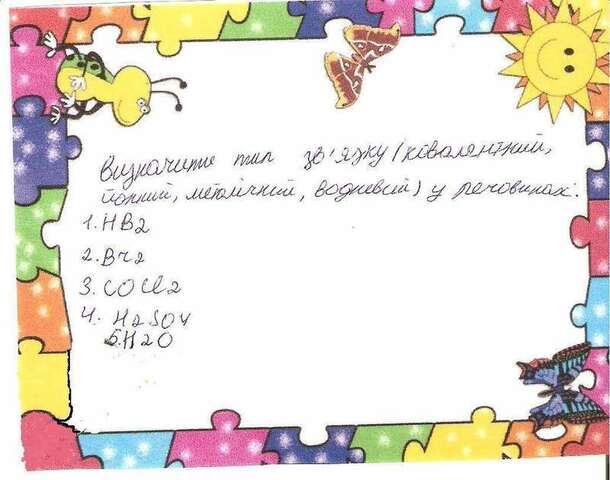 Визначити тип зв'язку (ковалентний,
йонний, металічний, водневий) у речовинах:
1. HB2
2. Br2
3. COCl2
4. H2SO4
5. H2O